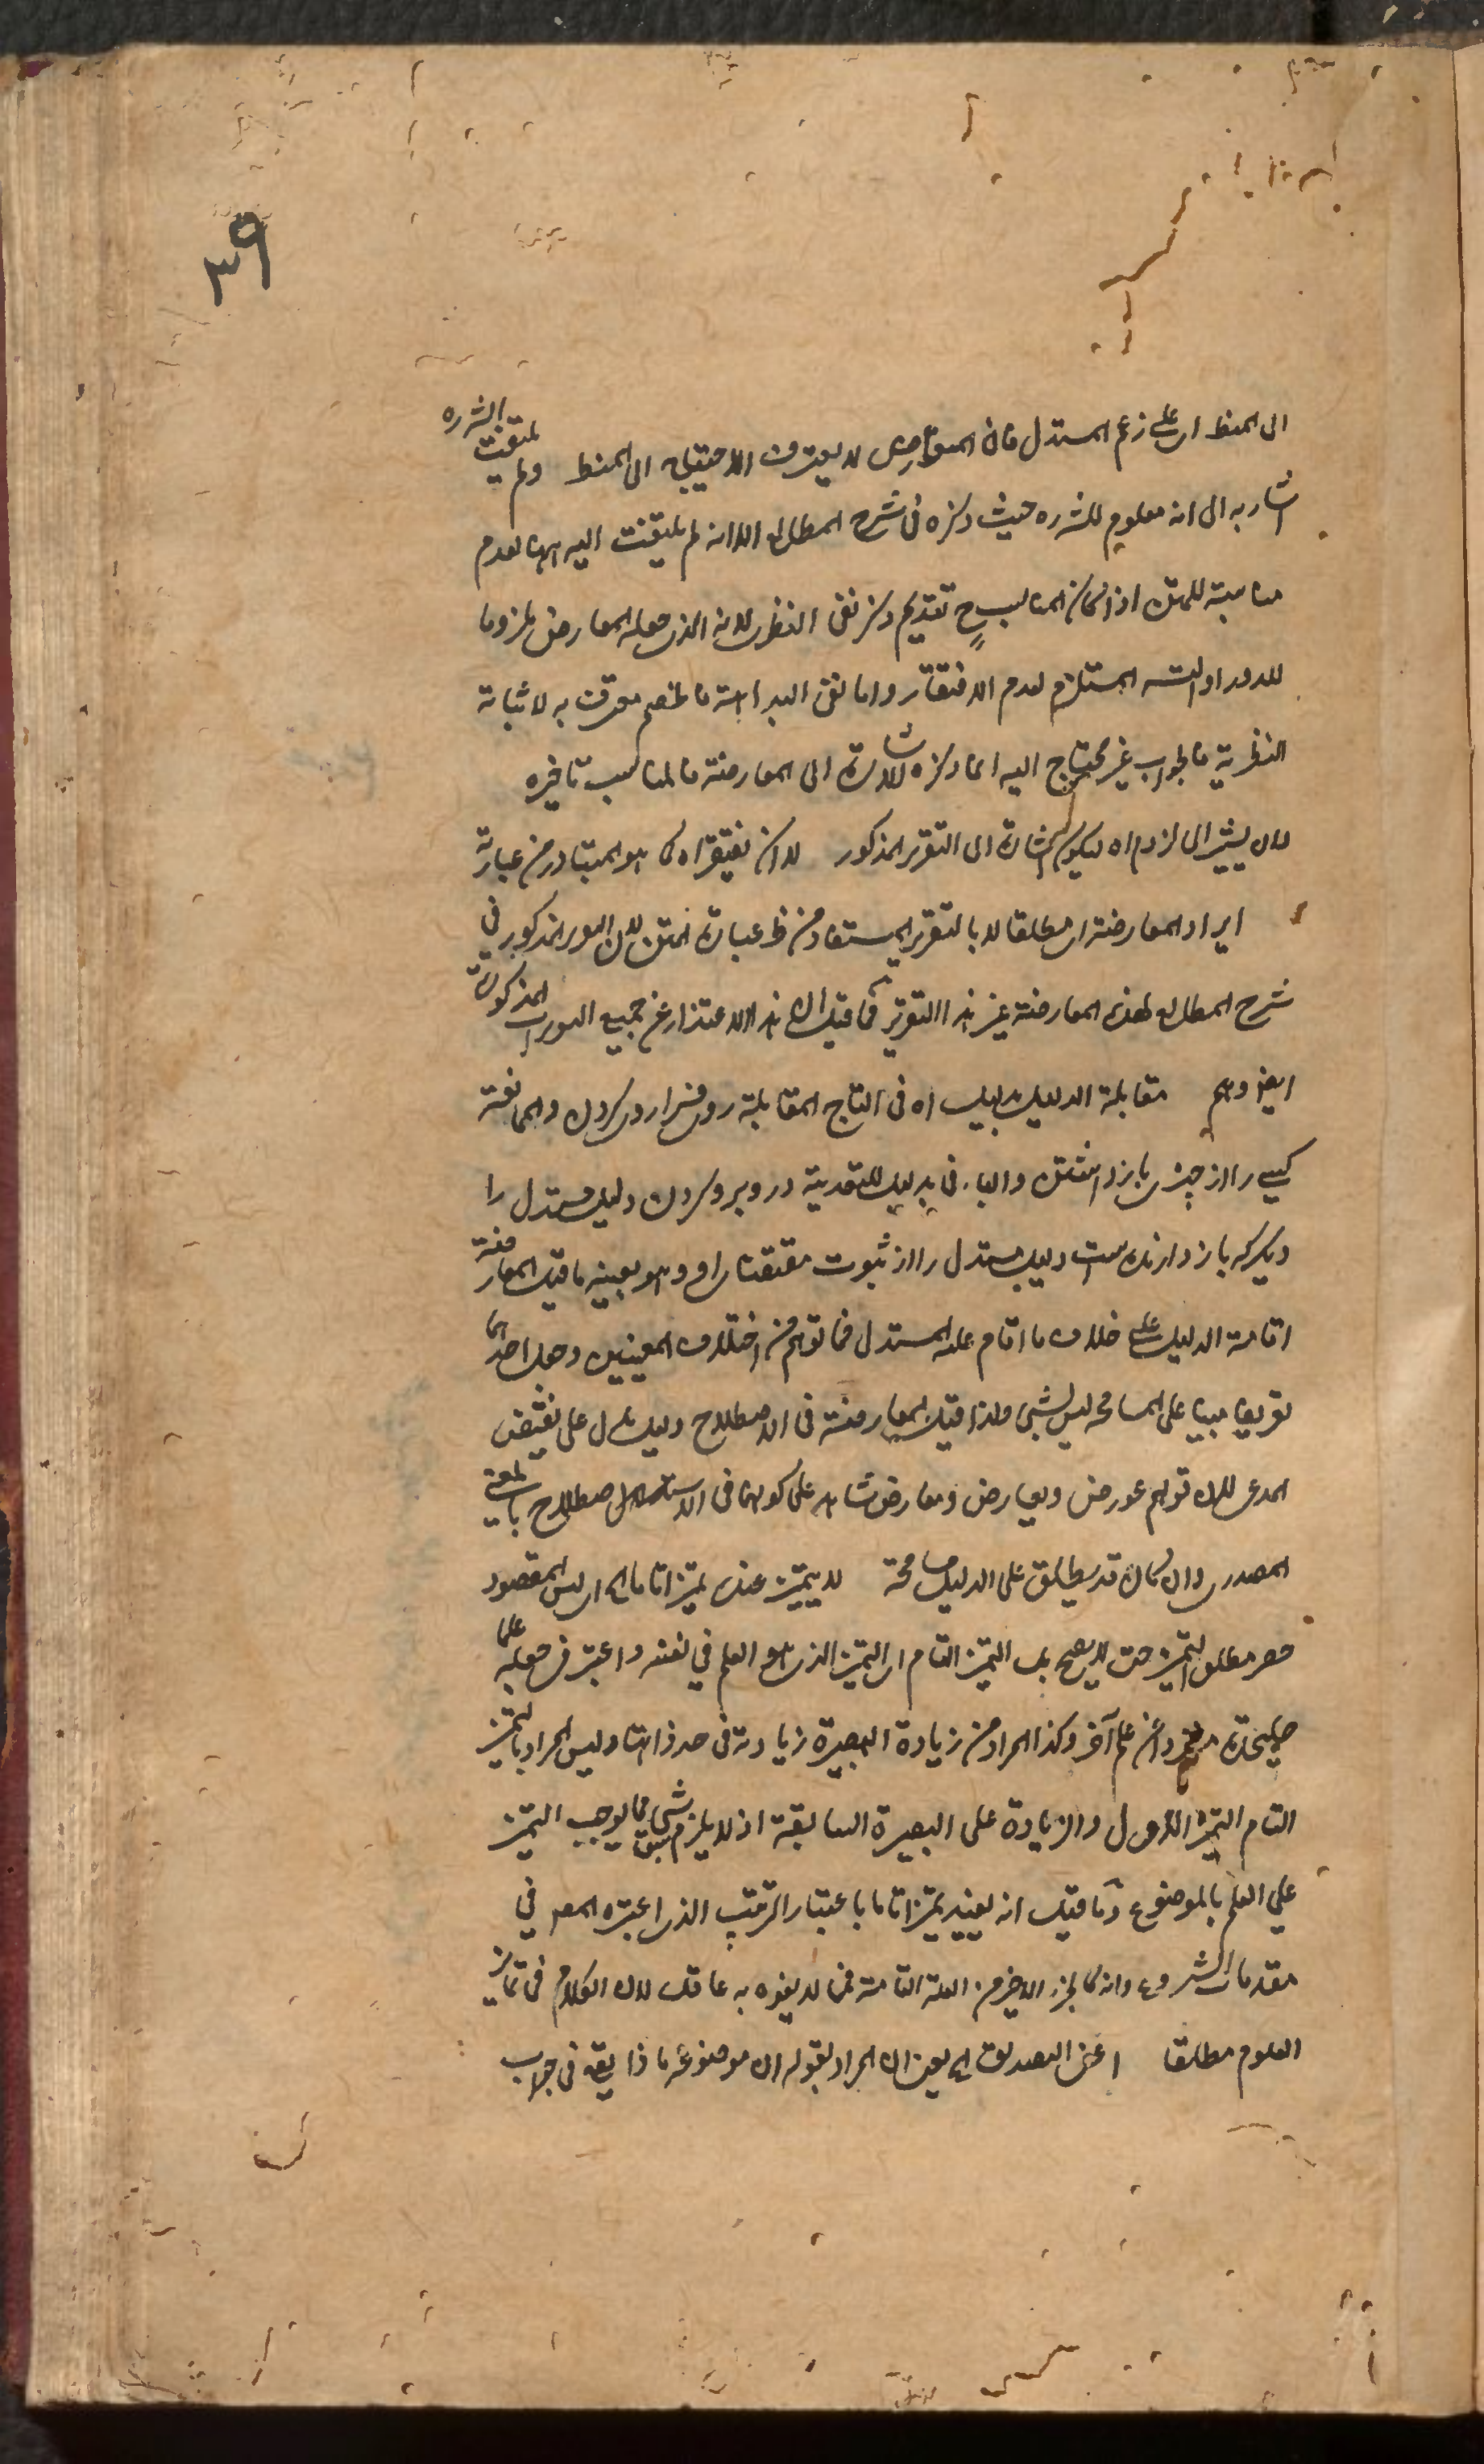 ٣٩
الى المنط اى على زعم المستدل فان المعارض لا يعترف الاحتياج الى المنط ولم يلتفت الشره
اشار به الى انه معلوم للشره حيث ذكره فى شرح المطالع الا انه لم يلتفت اليه ههنا لعدم
مناسبة للمتن اذ المناسب ح تقديم ذكر نفى النظرى لانه الذى جعله المعارض ملزوما
للدور او التسه المستلزم لعدم الافتقار واما نفى البداهة فالخصم معترف به لاثباته
النظرية فالجواب غير محتاج اليه انما ذكره للاشارة الى المعارضة فالمناسب تاخيره
لان يشير الى لزوم اه ليكون اشارة الى التقرير المذكور لا ان نفتقر اه كما هو المتبادر من عبارته
ايراد المعارضة اى مطلقا لا بالتقرير المستفاد من ظ عبارة المتن لان المورد المذكور فى
شرح المطالع لهذه المعارضة غير هذا التقرير فما قيل ان هذا الاعتذار عن جميع الصور المذكورة
ايض وهم مقابلة الدليل بدليل اه فى التاج المقابلة روى فرا روى كردن والممانعة
كسے را از چيزى باز داشتن والباء فى بدليل للتعدية در و برو كردن دليل مستدل را
ديگر كه باز دارنده است دليل مستدل را از ثبوت مقتضاى او وهو بعينه ما قيل المعارضة
اقامة الدليل على خلاف ما اقام عليه المستدل فما توهم من اختلاف المعنيين وجعل احدهما
تعريفا مبنيا على المسامحة ليس بشئ ولذا قيل المعارضة فى الاصطلاح دليل دل على نقيض
المدعى لان قولهم عورض ويعارض ومعارض شاهد على كونها فى الاصطلاح بالمعنى
المصدرى وان كان قد يطلق على الدليل مسامحة لا يتميز عنده تميزا تاما اه اى ليس المقصود
حصر مطلق التميز حتى لا يصح بل التميز التام اى التميز الذى هو العلم فى نفسه واعتبر فى جعله علما
عليحدة عن علم آخر وكذا المراد من زيادة البصيرة زيادة فى حد ذاتها وليس المراد بالتميز
التام التميز الاول والزيادة على البصيرة السابقة اذ لا يلزم سبق شئ مما يوجب التميز
على العلم بالموضوع وما قيل انه يفيد تميزا تاما باعتبار الترتيب الذى اعتبره المصر فى
مقدمات الشروع وانه كالجزء الاخير من العلة التامة فما لا يفوه به عاقل لان الكلام فى تمايز
العلوم مطلقا اعنى التصديق اه يعنى ان المراد بقوله ان موضوعه ماذا يقع فى جواب